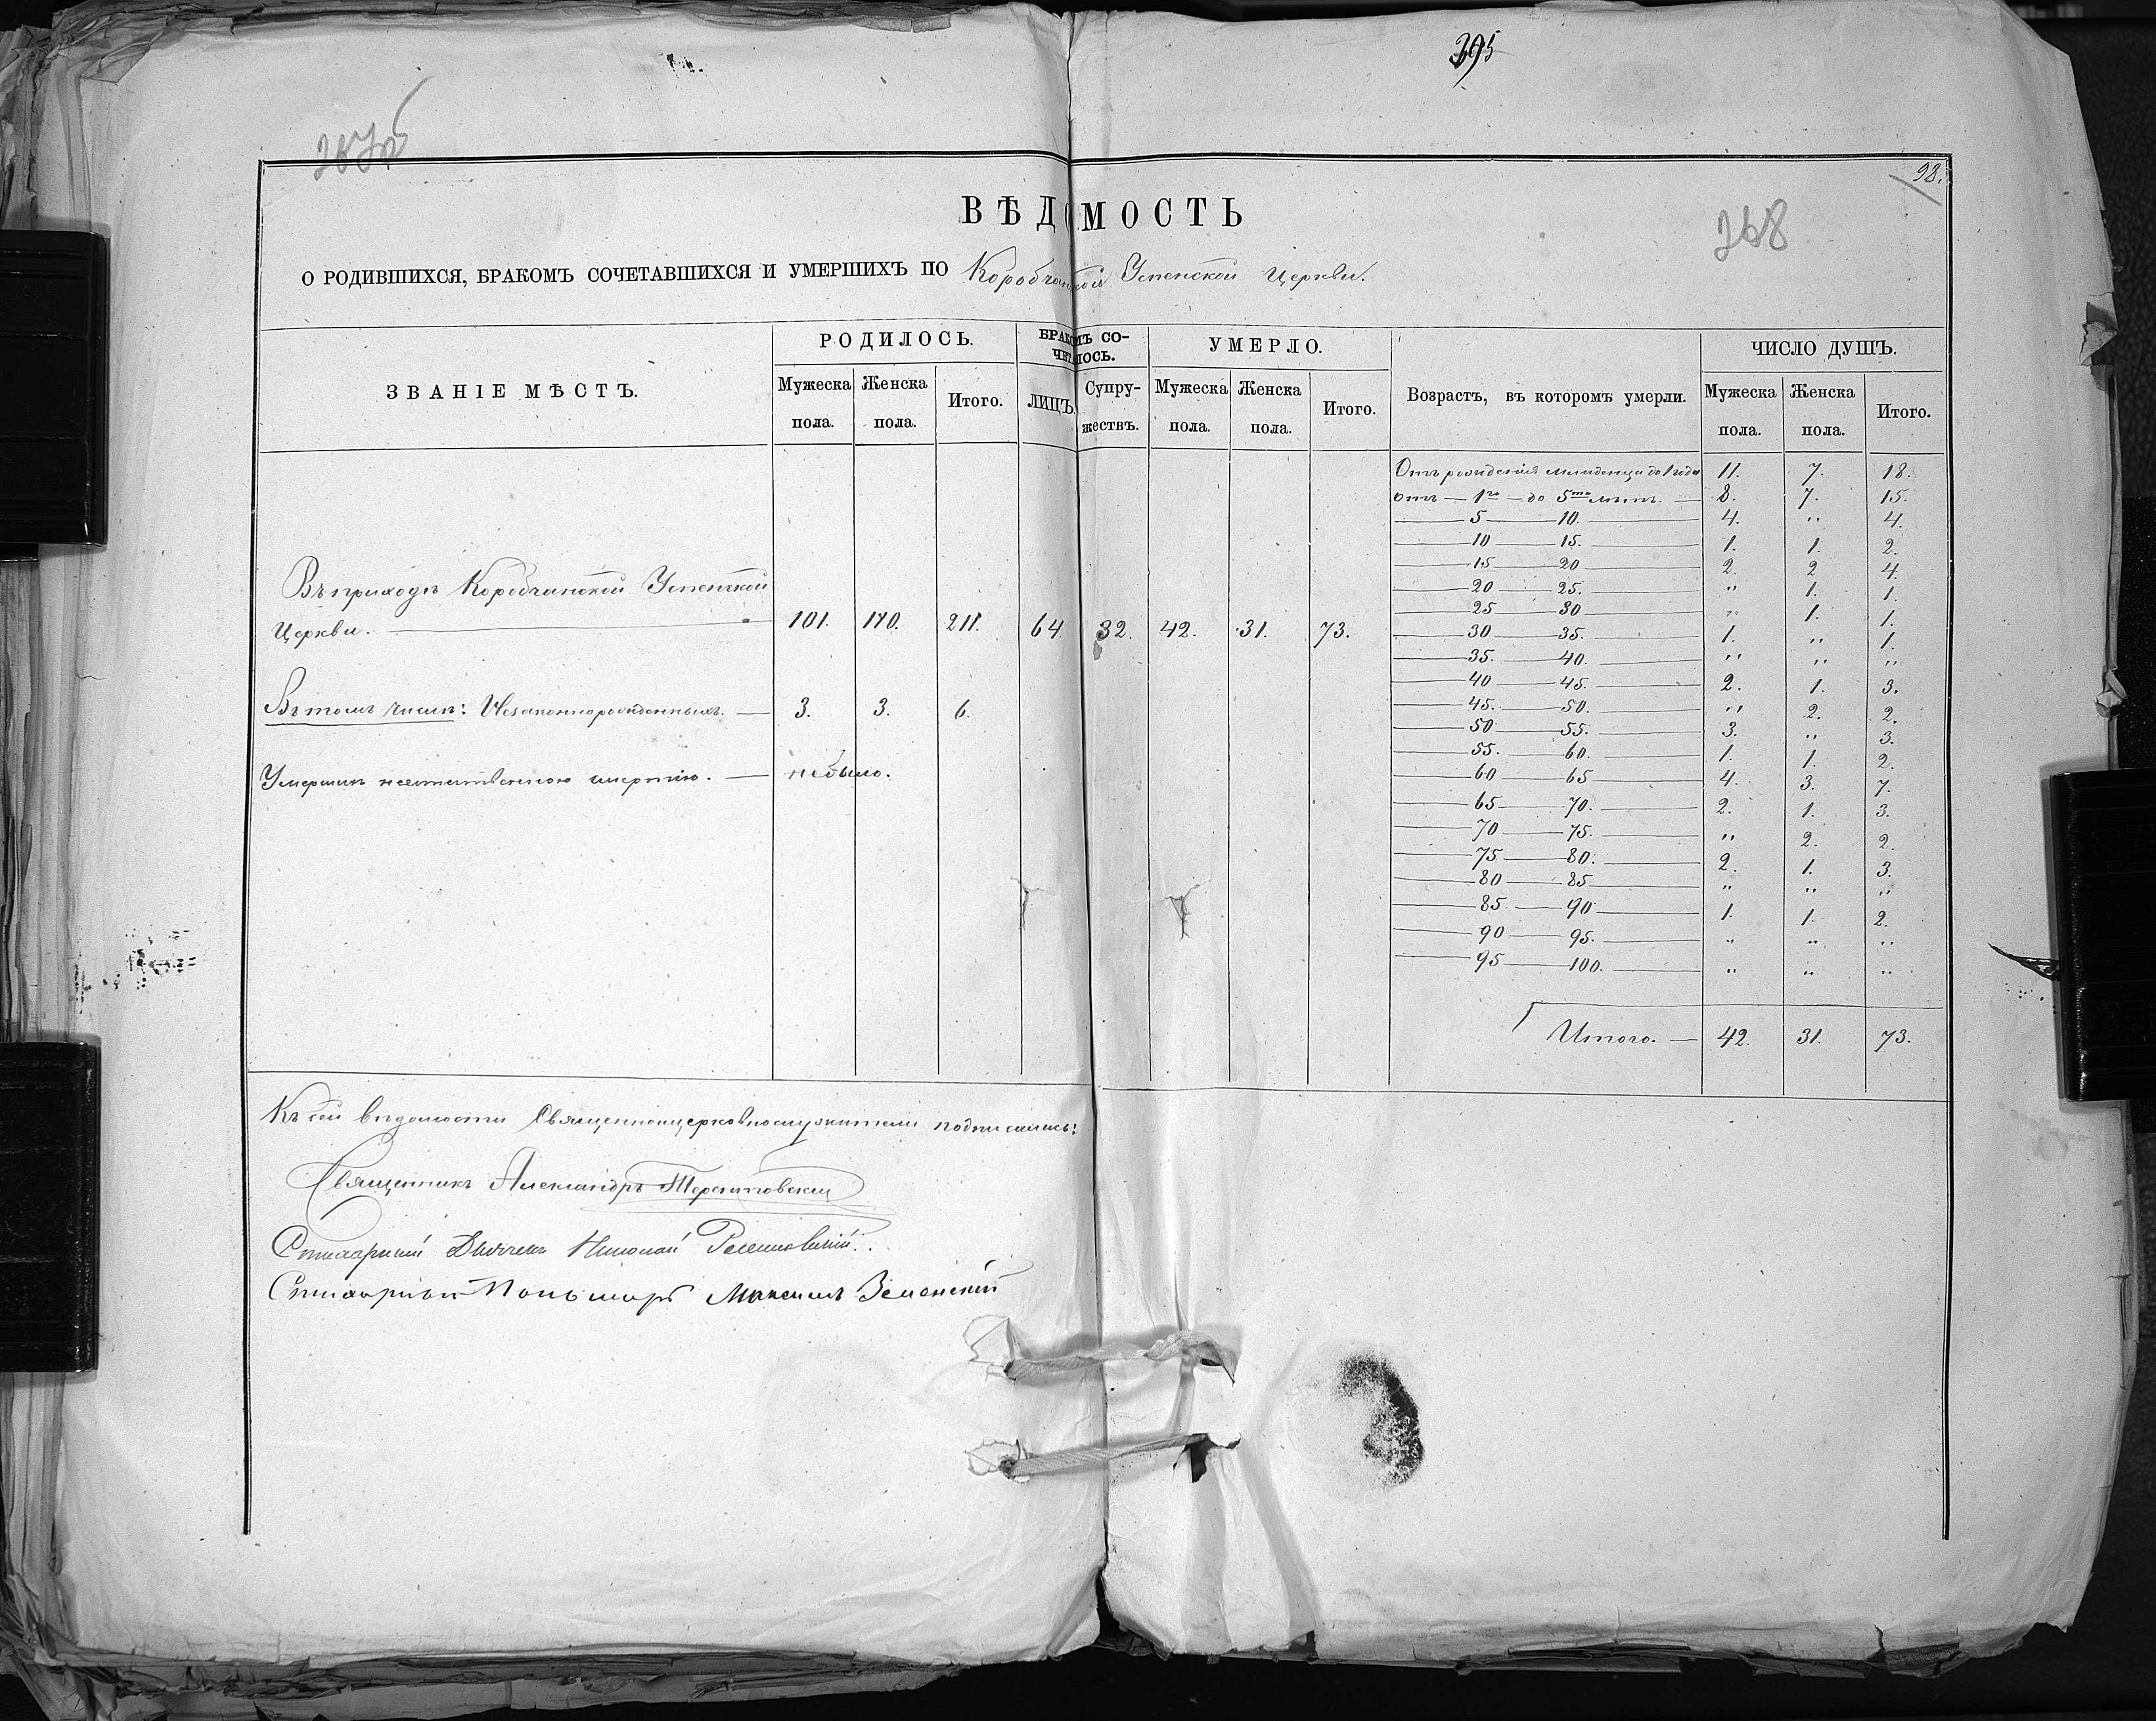 395
267об
98.
ВѢДОМОСТЬ
268
О РОДИВШИХСЯ, БРАКОМЪ СОЧЕТАВШИХСЯ И УМЕРШИХЪ ПО Коробчанской Успенской Церкви.
ЗВАНІЕ МѢСТЪ. РОДИЛОСЬ. БРАКОМЪ СО-ЧЕТАЛОСЬ. УМЕРЛО. Возрастъ, въ которомъ умерли. ЧИСЛО ДУШЪ.
Мужеска пола. Женска пола. Итого. ЛИЦЪ. Супру-жествъ. Мужеска пола. Женска пола. Итого. Мужеска пола. Женска пола. Итого.
Въ приходѣ Коробчанской Успенской
Церкви. 101. 110. 211. 64 32. 42. 31. 73.
Въ томъ числѣ: Незаконнорожденныхъ. 3. 3. 6.
Умершихъ неестественною смертію. небыло.
Отъ рожденія младенца до 1 года 11. 7. 18.
отъ — 1го — до 5ти лѣтъ. 8. 7. 15.
5 — 10. 4. " 4.
10 — 15. 1. 1. 2.
15 — 20 2. 2 4.
20 — 25. " 1. 1.
25 — 30 " 1. 1.
30 — 35. 1. " 1.
35. — 40. " " "
40 — 45. 2. 1. 3.
45. — 50. " 2. 2.
50 — 55. 3. " 3.
55. — 60. 1. 1. 2.
60 — 65 4. 3. 7.
65 — 70. 2. 1. 3.
70 — 75. " 2. 2.
75 — 80. 2. 1. 3.
80 — 85 " " "
85 — 90 1. 1. 2.
90 — 95. " " "
95 — 100. " " "
Итого. — 42. 31. 73.
Къ сей вѣдомости Священноцерковнослужители подписались:
Священникъ Александръ
Дьячекъ Николай
Пономарь Максимъ Земанскій